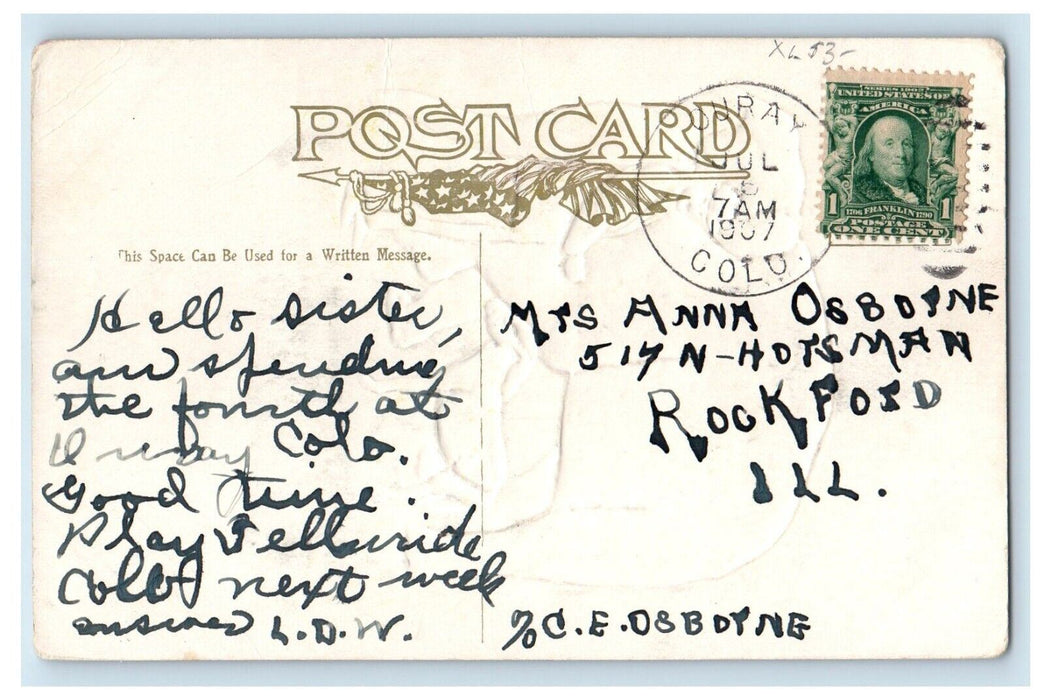 XL $3-
POST CARD
OURAY
JUL
5
7AM
1907
COLO.
SERIES 1902
UNITED STATES OF
AMERICA
1 1
1706 FRANKLIN 1790
POSTAGE
ONE CENT
This Space Can Be Used for a Written Message.
Hello sister,
am spending
the fourth at
Ouray Colo.
Good time.
Play Telluride
Colo next week
answer L.D.W.
Mrs ANNA OSBORNE
517 N-HORSMAN
ROCKFORD
ILL.
c/o C.E. OSBORNE